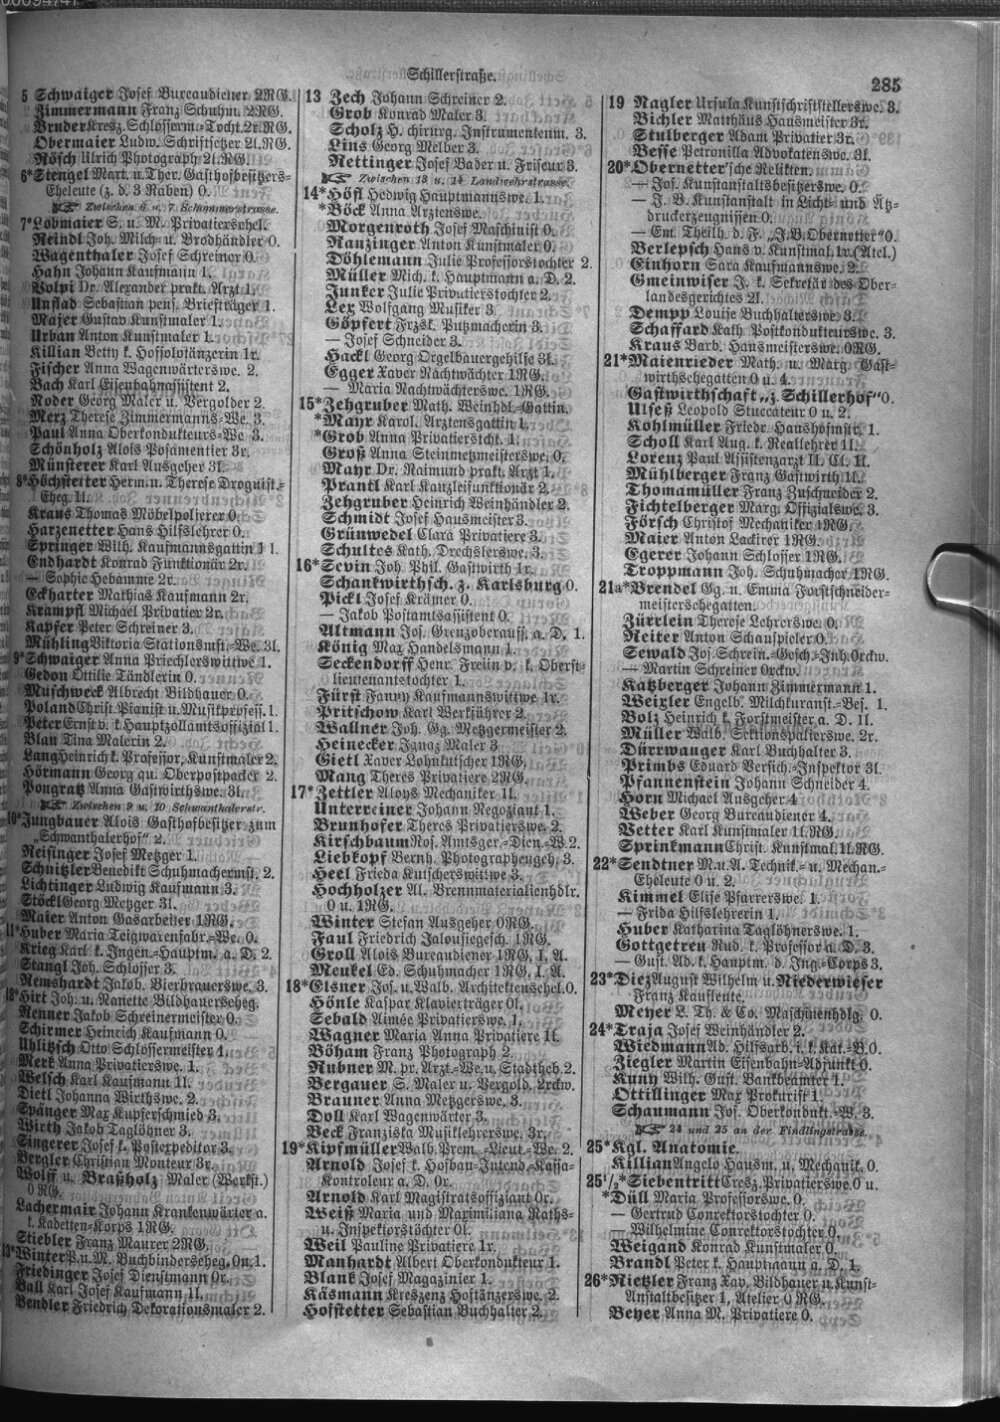 Schillerstraße.
285
5 Schwaiger Josef Bureaudiener 2RG.
Zimmermann Franz Schuhm. 2RG.
Bruder Kresz. Schlosserm.-Tocht. 2r.RG.
Obermaier Ludw. Schriftsetzer 2l.RG.
Rösch Ulrich Photograph 2l.RG.
6*Stengel Mart. u. Ther. Gasthofbesitzers-
Eheleute (z. d. 3 Raben) 0.
Zwischen 6 u. 7 Schommerstrasse.
7*Lobmaier S. u. M. Privatierschel.
Reindl Joh. Milch- u. Brodhändler 0.
Wagenthaler Josef Schreiner 0.
Hahn Johann Kaufmann 1.
Volpi Dr. Alexander prakt. Arzt 1.
Unstad Sebastian pens. Briefträger 1.
Majer Gustav Kunstmaler 1.
Urban Anton Kunstmaler 1.
Killian Betty k. Hofsolotänzerin 1r.
Fischer Anna Wagenwärterswe. 2.
Bach Karl Eisenbahnassistent 2.
Roder Georg Maler u. Vergolder 2.
Merz Therese Zimmermanns-We. 3.
Paul Anna Oberkondukteurs-We 3.
Schönholz Alois Posamentier 3r.
Münsterer Karl Ausgeher 3l.
8*Höchstetter Herm. u. Therese Droguist.-
Eheg. 1l.
Kraus Thomas Möbelpolierer 0.
Harzenetter Hans Hilfslehrer 0.
Springer Wilh. Kaufmannsgattin 1l.
Endhardt Konrad Funktionär 2r.
— Sophie Hebamme 2r.
Eckharter Mathias Kaufmann 2r.
Krampfl Michael Privatier 2r.
Kapfer Peter Schreiner 3.
Mühling Viktoria Stationsmst.-We. 3l.
9*Schwaiger Anna Priechlerswittwe 1.
Gedon Ottilie Tändlerin 0.
Muschweck Albrecht Bildhauer 0.
Poland Christ. Pianist u. Musikprofess. 1.
Peter Ernst v. k Hauptzollamtsoffizial 1.
Blau Tina Malerin 2.
Lang Heinrich k. Professor, Kunstmaler 2.
Hörmann Georg qu. Oberpostpacker 2.
Pongratz Anna Gastwirthswe. 3l.
Zwischen 9 u. 10 Schwanthalerstr.
10*Jungbauer Alois Gasthofbesitzer zum
„Schwanthalerhof“ 2.
Reisinger Josef Metzger 1.
Schnitzler Benedikt Schuhmachermst. 2.
Lichtinger Ludwig Kaufmann 3.
Stöckl Georg Metzger 3l.
Maier Anton Gasarbeiter 1RG.
11*Huber Maria Teigwarenfabr.-We. 0.
Krieg Karl k. Ingen.-Hauptm. a. D. 2.
Stangl Joh. Schlosser 3.
Remshardt Jakob. Bierbrauerswe. 3.
12*Hirt Joh. u. Nanette Bildhauerseheg.
Renner Jakob Schreinermeister 0.
Schirmer Heinrich Kaufmann 0.
Uhlitzsch Otto Schlossermeister 1.
Merk Anna Privatierswe. 1.
Welsch Karl Kaufmann 1l.
Dietl Johanna Wirthswe. 2.
Spänger Max Kupferschmied 3.
Wirth Jakob Taglöhner 3.
Singerer Josef k. Postexpeditor 3.
Bergler Christian Monteur 3r.
Wolff u. Braßholz Maler (Werkst.)
0 RG.
Lachermair Johann Krankenwärter a.
k. Kadetten-Korps 1RG.
Stiebler Franz Maurer 2RG.
13*Winter P. u. M. Buchbinderseheg. 0u. 1.
Friedinger Josef Dienstmann 0r.
Ball Karl Josef Kaufmann 1l.
Bendler Friedrich Dekorationsmaler 2.
13 Zech Johann Schreiner 2.
Grob Konrad Maler 3.
Scholz H. chirurg. Instrumentenm. 3.
Lins Georg Melber 3.
Rettinger Josef Bader u. Friseur 3.
Zwischen 13 u. 14 Landwehrstrasse.
14*Hösl Hedwig Hauptmannswe. 1.
*Böck Anna Arztenswe.
Morgenroth Josef Maschinist 0.
Ranzinger Anton Kunstmaler 0.
Döhlemann Julie Professorstochter 2.
Müller Mich. k. Hauptmann a. D. 2.
Junker Julie Privatierstochter 2.
Lex Wolfgang Musiker 3.
Göpfert Frzsk. Putzmacherin 3.
— Josef Schneider 3.
Hackl Georg Orgelbauergehilfe 3l.
Egger Xaver Nachtwächter 1RG.
— Maria Nachtwächterswe. 1RG.
15*Zehgruber Math. Weinhdl.-Gattin.
*Mayr Karol. Arztensgattin 1.
*Grob Anna Privatierstcht. 1.
Groß Anna Steinmetzmeisterswe. 0.
Mayr Dr. Raimund prakt. Arzt 1.
Prantl Karl Kanzleifunktionär 2.
Zehgruber Heinrich Weinhändler 2.
Schmidt Josef Hausmeister 3.
Grünwedel Clara Privatiere 3.
Schultes Kath. Drechslerswe. 3.
16*Sevin Joh. Phil. Gastwirth 1r.
Schankwirthsch. z. Karlsburg 0.
Pickl Josef Krämer 0.
— Jakob Postamtsassistent 0.
Altmann Jos. Grenzoberauff. a. D. 1.
König Max Handelsmann 1.
Seckendorff Henr. Freiin v. k. Oberst-
lieutenantstochter 1.
Fürst Fanny Kaufmannswittwe 1r.
Pritschow Karl Werkführer 2.
Wallner Joh. Gg. Metzgermeister 2.
Heinecker Ignaz Maler 3
Gietl Xaver Lohnkutscher 1RG.
Mang Theres Privatiere 2RG.
17*Zettler Aloys Mechaniker 1l.
Unterreiner Johann Negoziant 1.
Brunhofer Theres Privatierswe. 2.
Kirschbaum Ros. Amtsger.-Dien.-W. 2.
Liebkopf Bernh. Photographengeh. 3.
Heel Frieda Kutscherswittwe 3.
Hochholzer Al. Brennmaterialienhdlr.
0 u. 1RG.
Winter Stefan Ausgeher 0RG.
Faul Friedrich Jalousiegesch. 1RG.
Groll Alois Bureaudiener 1RG. l. A.
Meukel Ed. Schuhmacher 1RG. l. A.
18*Elsner Jos. u. Walb. Architektensehel. 0.
Hönle Kaspar Klavierträger 0l.
Sebald Aimée Privatierswe. 1.
Wagner Maria Anna Privatiere 1l.
Böham Franz Photograph 2.
Rubner M. pr. Arzt.-We. u. Stadtheb. 2.
Bergauer S. Maler u. Vergold. 2rckw.
Brauner Anna Metzgerswe. 3.
Doll Karl Wagenwärter 3.
Beck Franziska Musiklehrerswe. 3r.
19*Kipfmüller Walb. Prem.-Lieut.-We. 2.
Arnold Josef k. Hofbau-Intend.-Kassa-
Kontroleur a. D. 0r.
Arnold Karl Magistratsoffiziant 0r.
Weiß Maria und Maximiliana Raths-
u. Inspektorstöchter 0l.
Weil Pauline Privatiere 1r.
Manhardt Albert Oberkondukteur 1.
Blank Josef Magazinier 1.
Käsmann Kreszenz Hoftänzerswe. 2.
Hofstetter Sebastian Buchhalter 2.
19 Nagler Ursula Kunstschriftstellerswe. 3.
Bichler Matthäus Hausmeister 3r.
Stulberger Adam Privatier 3r.
Besse Petronilla Advokatenswe. 3l.
20*Obernetter'sche Relikten.
— Jos. Kunstanstaltsbesitzerswe. 0.
— J. B. Kunstanstalt in Licht- und Ätz-
druckerzeugnissen 0.
— Em. Theilh. d. F. „J. B. Obernetter“ 0.
Berlepsch Hans v. Kunstmal. 1r. (Atel.)
Einhorn Sara Kaufmannswe. 2.
Gmeinwiser J. k. Sekretär des Ober-
landesgerichtes 2l.
Dempp Louise Buchhalterswe. 3.
Schaffard Kath. Postkondukteurswe. 3.
Kraus Barb. Hausmeisterswe. 0RG.
21*Maienrieder Math. u. Marg. Gast-
wirthsehegatten 0 u. 4.
Gastwirthschaft „z. Schillerhof“ 0.
Ulseß Leopold Stuccateur 0 u. 2.
Kohlmüller Friedr. Haushofmstr. 1.
Scholl Karl Aug. k. Reallehrer 1l.
Lorenz Paul Assistenzarzt II. Cl. 1l.
Mühlberger Franz Gastwirth 1l.
Thomamüller Franz Zuschneider 2.
Fichtelberger Marg. Offizialswe. 3.
Försch Christof Mechaniker 1RG.
Maier Anton Lackirer 1RG.
Egerer Johann Schlosser 1RG.
Troppmann Joh. Schuhmacher 1RG.
21a*Brendel Gg. u. Emma Forstschneider-
meistersehegatten.
Zürrlein Therese Lehrerswe. 0.
Reiter Anton Schauspieler 0.
Sewald Jos. Schrein.-Gesch.-Inh. 0rckw.
— Martin Schreiner 0rckw.
Katzberger Johann Zimmermann 1.
Weixler Engelb. Milchkuranst.-Bes. 1.
Bolz Heinrich k. Forstmeister a. D. 1l.
Müller Walb. Sektionspalierswe. 2r.
Dürrwanger Karl Buchhalter 3.
Primbs Eduard Versich.-Inspektor 3l.
Pfannenstein Johann Schneider 4.
Horn Michael Ausgeher 4
Weber Georg Bureaudiener 4.
Vetter Karl Kunstmaler 1l.RG.
Sprinkmann Christ. Kunstmal. 1l.RG.
22*Sendtner M. u. A. Technik.- u. Mechan.-
Eheleute 0 u. 2.
Kimmel Elise Pfarrerswe. 1.
— Frida Hilfslehrerin 1.
Huber Katharina Taglöhnerswe. 1.
Gottgetreu Rud. k. Professor a. D. 3.
— Gust. Ad. k. Hauptm. d. Ing.-Corps 3.
23*Diez August Wilhelm u. Niederwieser
Franz Kaufleute.
Meyer L. Th. & Co. Maschinenhdlg. 0.
24*Traja Josef Weinhändler 2.
Wiedmann Ad. Hilfsarb. i. k. Kat.-B. 0.
Ziegler Martin Eisenbahn-Adjunkt 0.
Kuny Wilh. Gust. Bankbeamter 1.
Ottillinger Max Prokurist 1.
Schaumann Jos. Oberkondukt.-W. 3.
24 und 25 an der Findlingstrasse.
25*Kgl. Anatomie.
Killian Angelo Hausm. u. Mechanik. 0.
25½*Siebentritt Cresz. Privatierswe. 0 u.
*Düll Maria Professorswe. 0.
— Gertrud Conrektorstochter 0.
— Wilhelmine Conrektorstochter 0.
Weigand Konrad Kunstmaler 0.
Brandl Peter k. Hauptmann a. D. 1.
26*Rietzler Franz Xav. Bildhauer u. Kunst-
Anstaltbesitzer 1, Atelier 0 RG.
Beyer Anna M. Privatiere 0.